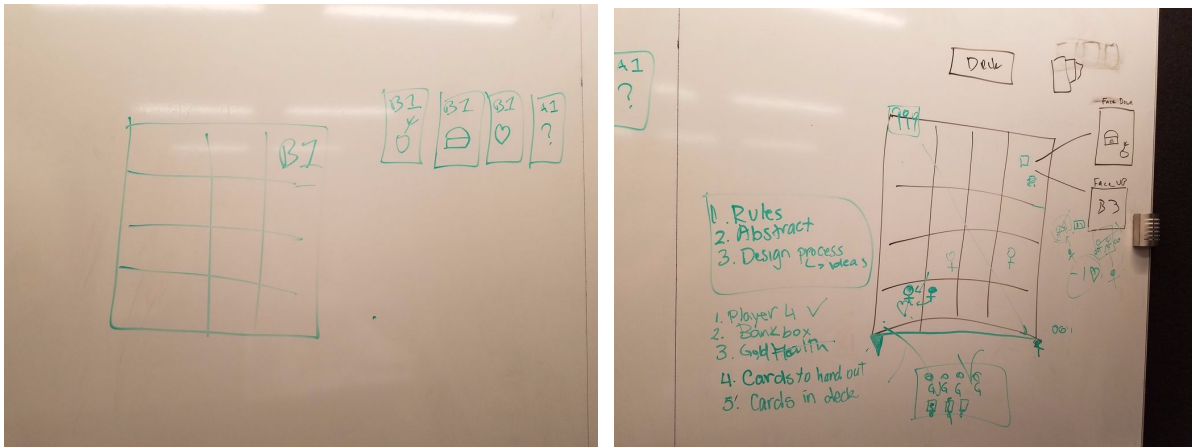 B1
B1
B1
B1
A1
?
A1
?
Deck
Face Down
Face UP
B3
1. Rules
2. Abstract
3. Design process
↳ ideas
1. Player 4 ✓
2. Bankbox
3. Gold Health
4. Cards to hand out
5. Cards in deck
-1
G G G G